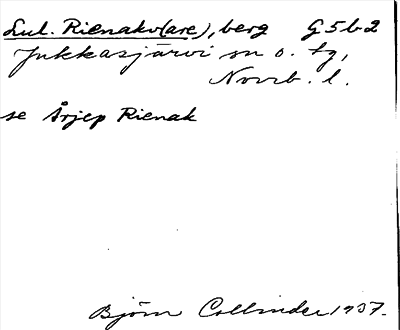 Lul. Rienakv(are), berg G5b2
Jukkasjärvi sn o. tg,
Norrb. l.
se Årjep Rienak
Björn Collinder 1937.